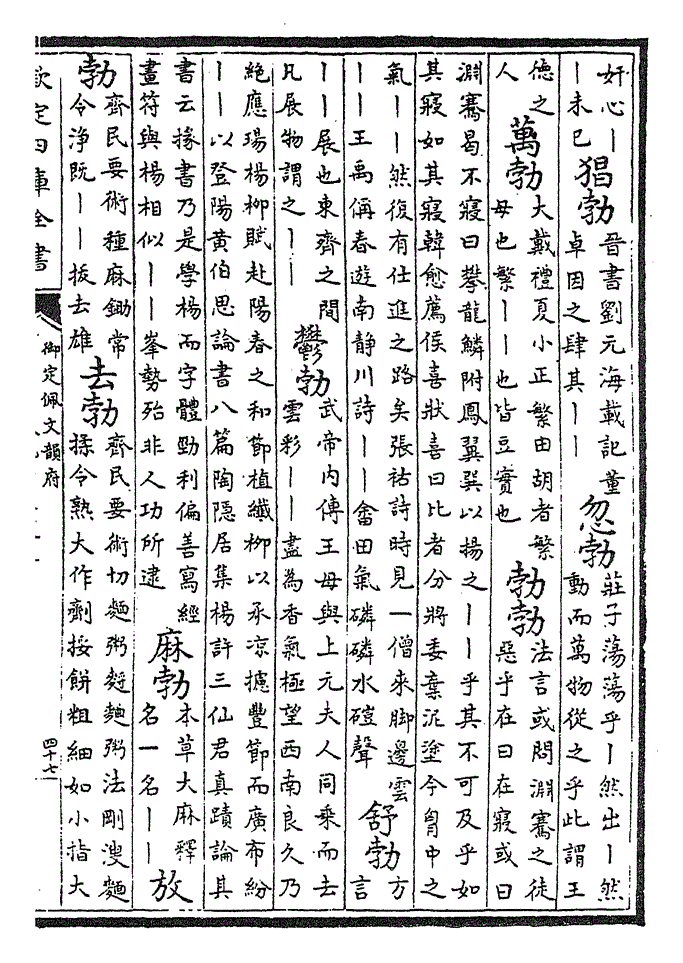 奸心丨
丨未已
猖勃
晉書劉元海載記董
卓因之肆其丨丨
忽勃
莊子蕩蕩乎丨然出丨然
動而萬物從之乎此謂王
德之
人
萬勃
大戴禮夏小正繁由胡者繁
母也繁丨丨也皆豆實也
勃勃
法言或問淵騫之徒
惡乎在曰在寢或曰
淵騫曷不寢曰攀龍鱗附鳳翼巽以揚之丨丨乎其不可及乎如
其寢如其寢韓愈薦侯喜狀喜曰比者分將委棄泥塗今胷中之
氣丨丨然復有仕進之路矣張祜詩時見一僧來脚邊雲
丨丨王禹偁春遊南静川詩丨丨畬田氣磷磷水磑聲
舒勃
方
言
丨丨展也東齊之間
凡展物謂之丨丨
鬱勃
武帝内傳王母與上元夫人同乘而去
雲彩丨丨盡為香氣極望西南良久乃
絶應瑒楊柳賦赴陽春之和節植纎柳以承凉攄豐節而廣布紛
丨丨以登陽黄伯思論書八篇陶隠居集楊許三仙君真蹟論其
書云掾書乃是學楊而字體勁利偏善寫經
畫符與楊相似丨丨峯勢殆非人功所逮
麻勃
本草大麻釋
名一名丨丨
放
勃
齊民要術種麻鋤常
令浄既丨丨拔去雄
去勃
齊民要術切麵粥麵粥法剛溲麵
揉令熟大作劑挼餅粗細如小指大
欽定四庫全書
御定佩文韻府
四十七